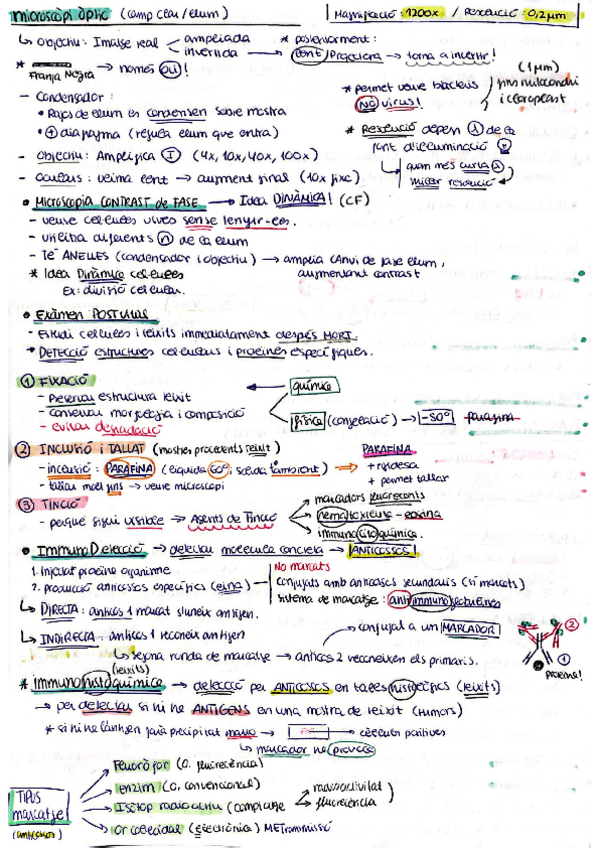 microscopi òptic (camp clar/llum)
Magnificació: 1200x / Resolució: 0,2µm
↳ objectiu: Imatge real ampliada invertida
* posteriorment:
ocul / Projectora → torna a invertir!
* Franja Negra → només
* permet veure bacteris NO virus!
(1µm)
pris mitocondri i cloroplast
- Condensador:
• Rajos de llum es condensen sobre mostra
• ⊕ diafragma (regula llum que entra)
* Resolució depèn λ de la font d'il·luminació
quan més curta λ millor resolució
- objectiu: Amplifica I (4x, 10x, 40x, 100x)
- oculars: veiem → augment final (10x fixe)
• Microscopia CONTRAST de FASE → Idea DINÀMICA! (CF)
- veure cèl·lules vives sense tenyir-les.
- utilitza diferents n de la llum
- Té ANELLES (condensador i objectiu) → amplia canvi de fase llum, augmentant contrast
* Idea Dinàmica cèl·lules
Ex: divisió cel·lular.
• Exàmen POSTVITAL
- Estudi cèl·lules i teixits immediatament després MORT.
→ Detecció estructures cel·lulars i proteïnes específiques.
① FIXACIÓ
- Preservar estructura teixit
- Conservar morfologia i composició
- evitar degradació
química
física (congelació) → -50º parafina
② INCLUSIÓ i TALLAT (mostres procedents teixit)
- inclusió: PARAFINA (líquida 60º, sòlida t'ambient) →
- tallar molt fins → veure microscopi
PARAFINA
+ rigidesa
+ permet tallar
③ TINCIÓ
- perquè sigui visible → Agents de Tinció
marcadors fluorescents
hematoxilina - eosina
immunocitoquímica.
• Immuno Detecció → detectar molècula concreta → ANTICOSSOS
1. Injectar proteïna organisme
2. producció anticossos específics (eina)
No marcats
conjugats amb anticossos secundaris (sí marcats)
sistema de marcatge: anti immunoglobulines
↳ DIRECTA: anticòs 1 marcat s'uneix antigen.
↳ INDIRECTA: anticòs 1 reconeix antigen
↳ segona ronda de marcatge → anticòs 2 reconeixen els primaris.
conjugat a un MARCADOR
②
①
proteïna!
(teixits)
* Immunohistoquímica → detecció per ANTICOSSOS en talls histològics (teixits)
→ per detectar si hi ha ANTIGENS en una mostra de teixit (tumors)
* si hi ha l'antigen farà precipitat marró → cèl·lules positives
↳ marcador ho provoca
TIPUS marcatge (anticossos)
Fluoròfor (o. fluorescència)
enzim (o. convencional)
Isòtop radioactiu (comptatge radioactivitat / fluorescència)
or col·loidal (electrònica) METransmissió